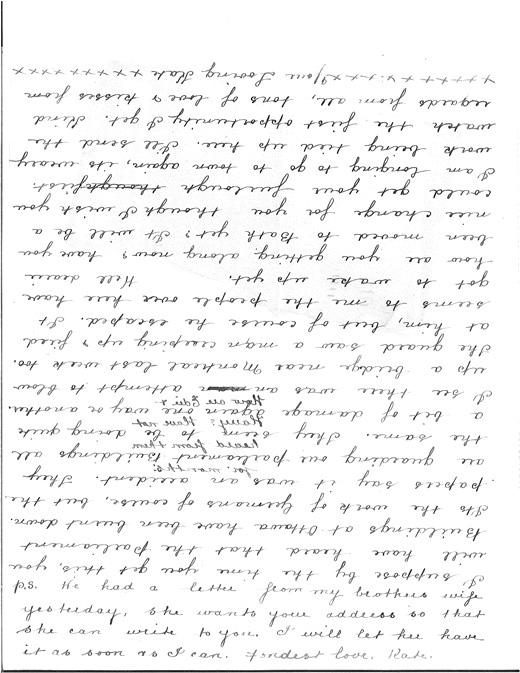 I suppose by the time you get this, you
will have heard that the Parliament
Buildings at Ottawa have been burnt down.
Its the work of Germans of course, but the
papers say it was an accident. They
are guarding our parliament Buildings all
the same. They seem to be doing quite
a bit of damage again one way or another.
I see there was an attempt to blow
up a bridge near Montreal last week too.
The guard saw a man creeping up & fired
at him, but of course he escaped. It
seems to me the people over here have
got to wake up yet. Well dearie
how are you getting along now? have you
been moved to Bath yet? It will be a
nice change for you though I wish you
could get your furlough though first.
I am longing to go to town again, its weary
work being tied up here. I'll send the
watch the first opportunity I get. Kind
regards from all, tons of love & kisses from
x x x x x x x x Your Loving Kate x x x x x x x x
How are Edie &
Harry? Have not
heard from them
for months.
p.s. We had a letter from my brothers wife
yesterday, she wants your address so that
she can write to you. I will let her have
it as soon as I can. Fondest love. Kate.